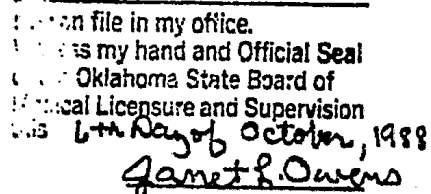 on file in my office.
my hand and Official Seal
Oklahoma State Board of
Licensure and Supervision
6th Day of October, 1988
Janet L. Owens